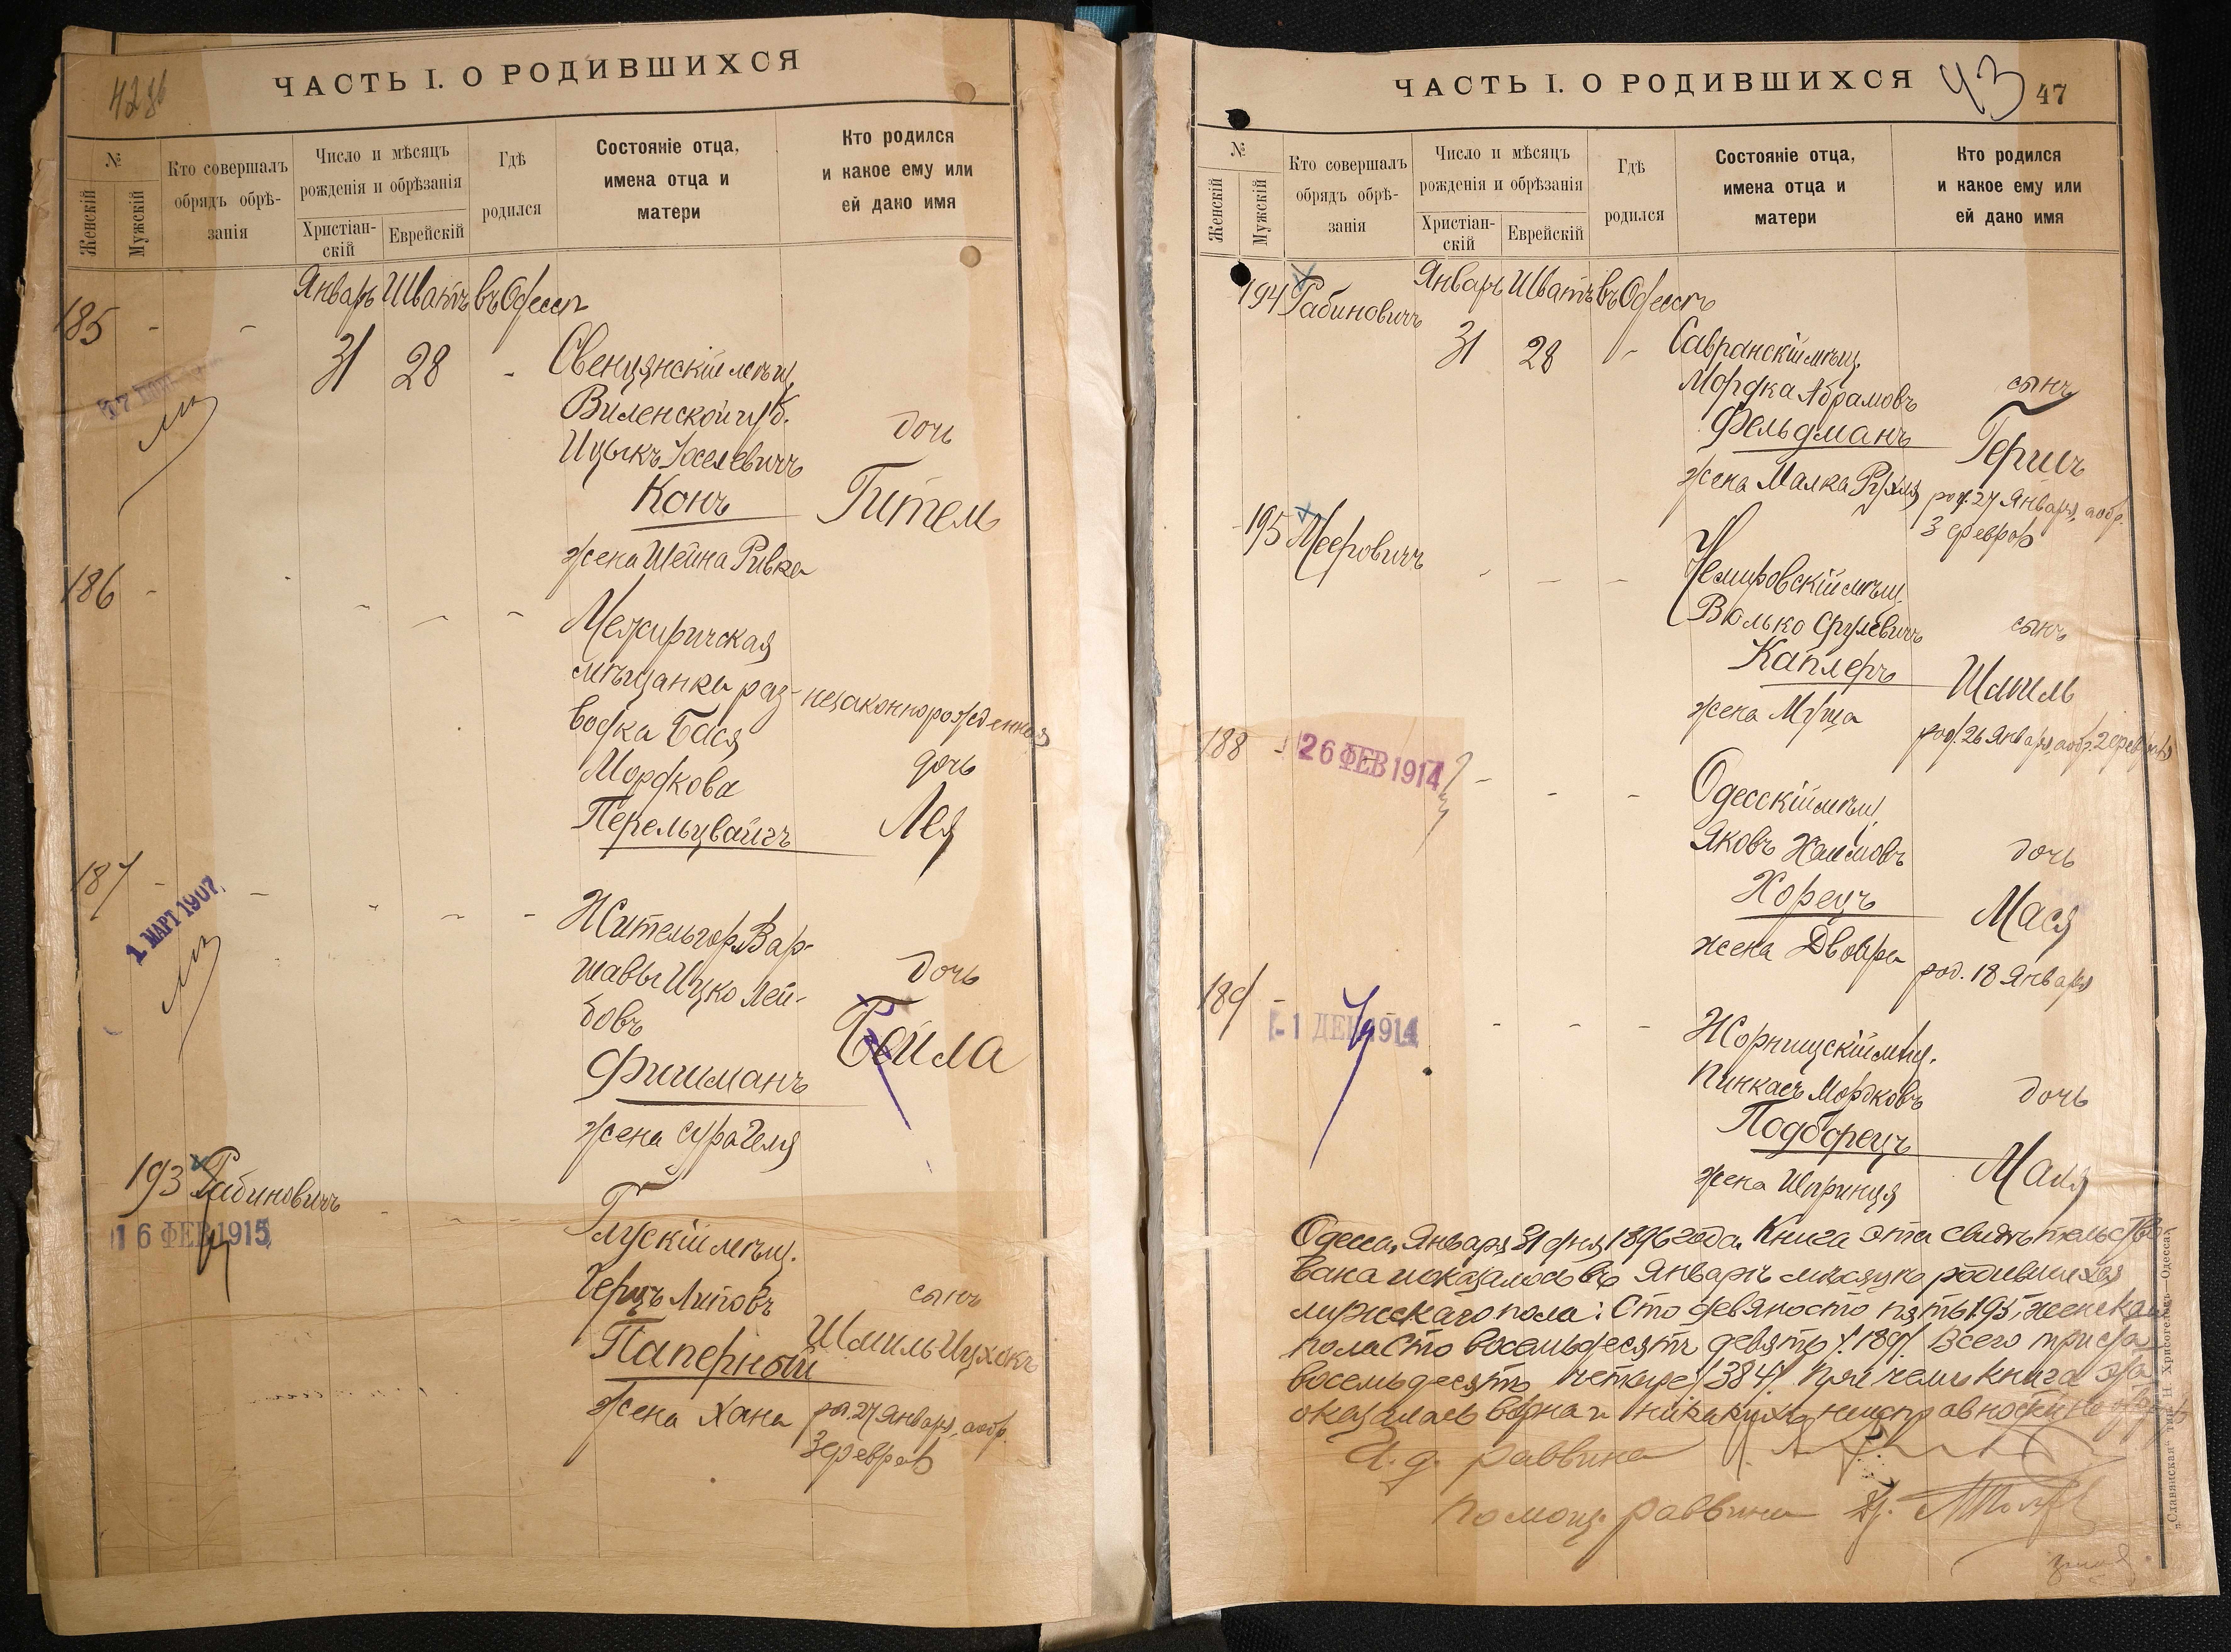 42 об
ЧАСТЬ I. О РОДИВШИХСЯ
№
Женскій
Мужскій
Кто совершалъ
обрядъ обрѣ-
занія
Число и мѣсяцъ
рожденія и обрѣзанія
Христіан-
скій
Еврейскій
Гдѣ
родился
Состояніе отца,
имена отца и
матери
Кто родился
и какое ему или
ей дано имя
Январь Шватъ въ Одессѣ
185 - - 31 28 - Свенцянскій мѣщ.
Виленской губ.
Ицыкъ Іоселевичъ
дочь
Конъ
Гитель
жена Шейна Ривка
186 - - - - - Межиричская
мѣщанка раз-
незаконнорожденная
водка Бася
Мордкова
дочь
Перельцвайгъ
Лея
187 - - - - - Житель гор. Вар-
1. МАРТ 1907.
шавы Ицко Лей-
дочь
бовъ
Бейла
Фишманъ
жена Сура Геля
193 Рабиновичъ - - - Глускій мѣщ.
16 ФЕВ 1915
Герцъ Липовъ
сынъ
Паперный
Шмиль Ицхокъ
жена Хана
род. 27 Января, а обр.
3 февраля
ЧАСТЬ I. О РОДИВШИХСЯ
43
47
№
Женскій
Мужскій
Кто совершалъ
обрядъ обрѣ-
занія
Число и мѣсяцъ
рожденія и обрѣзанія
Христіан-
скій
Еврейскій
Гдѣ
родился
Состояніе отца,
имена отца и
матери
Кто родился
и какое ему или
ей дано имя
Январь Шватъ въ Одессѣ
194 Рабиновичъ 31 28 - Савранскій мѣщ.
Мордка Абрамовъ
сынъ
Фельдманъ
Гершъ
жена Малка Рухля
род. 27 Января, а обр.
3 февраля
195 Мееровичъ - - - Немировскій мѣщ.
Волько Срулевичъ
сынъ
Каплеръ
Шмиль
жена
род. 26 Января а обр. 2 февраля
188 - 26 ФЕВ 1914 - - - Одесскій мѣщ.
Яковъ Хаимовъ
дочь
Хорецъ
Мася
жена Двойра
род. 18 Января
189 - - - - Жорнищскій мѣщ.
-1 ДЕК 1914
Пинкасъ Мордковъ
дочь
Подборецъ
Маля
жена Шпринця
Одесса, Января 31 дня 1896 года. Книга эта свидѣтельство-
вана и оказалось въ Январѣ мѣсяцѣ родившихся
мужскаго пола: Сто девяносто пять 195, женскаго
пола Сто восемьдесятъ девять 189. Всего триста
восемьдесятъ четыре 384. При чемъ книга эта
оказалась вѣрна и никакихъ неисправностей нѣтъ
И. д. раввина
Помощ. раввина
„Славянская“ тип. Н. Хрисогелосъ Одесса